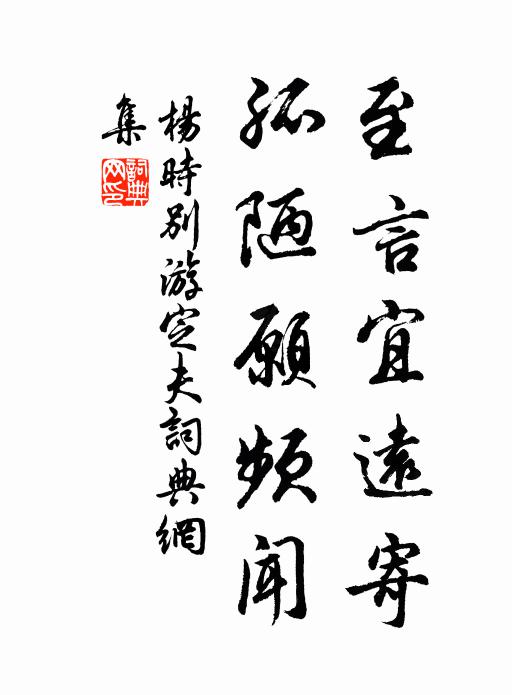 至言宜遠寄
孤陋願頻聞
楊時別游定夫詞典網
集
詞典
网印